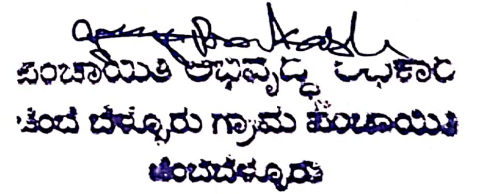 ಪಂಚಾಯಿತಿ ಅಭಿವೃದ್ಧಿ ಅಧಿಕಾರಿ
ಚಂದ ಬಳ್ಳೂರು ಗ್ರಾಮ ಪಂಚಾಯಿತಿ
ಚಂದಬಳ್ಳೂರು